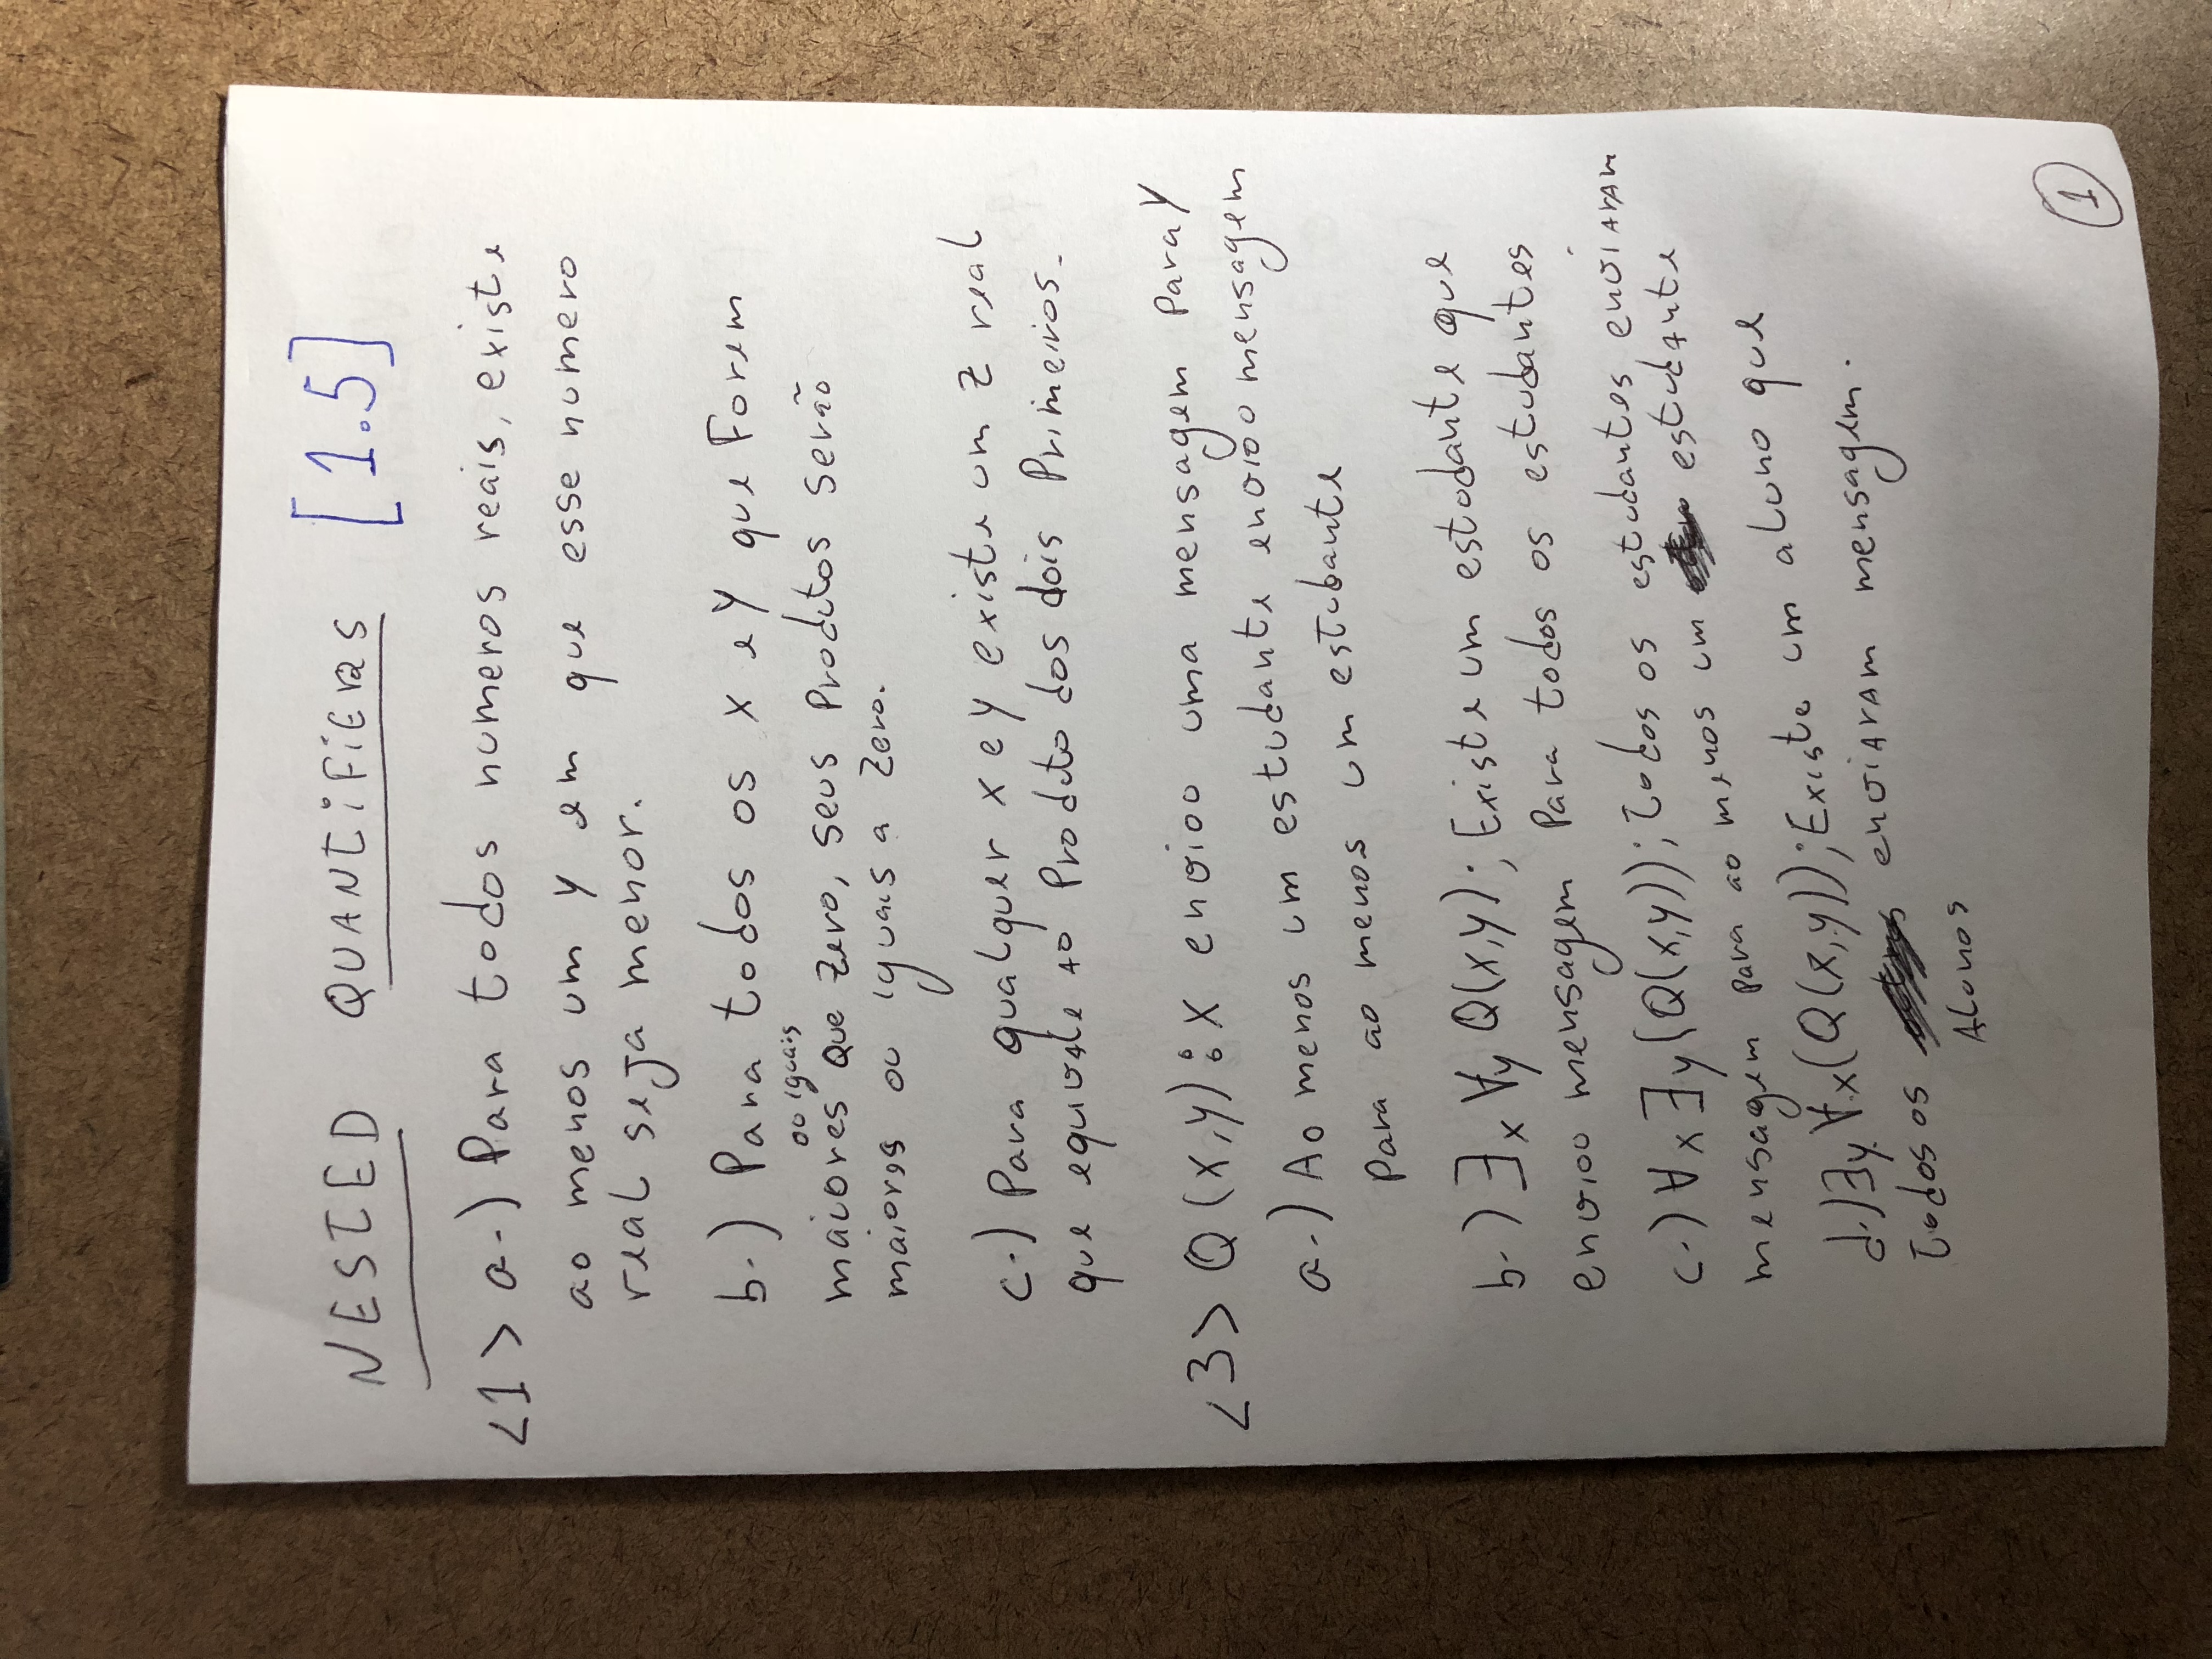 NESTED QUANTIFIERS [1.5]
<1> a.) Para todos numeros reais, existe
ao menos um y em que esse numero
real seja menor.
b.) Para todos os x e y que Forem
ou iguais
maiores que zero, seus produtos serão
maiores ou iguais a zero.
c.) Para qualquer x e y existe um z real
que equivale ao produto dos dois primeiros.
<3> Q(x,y): x enviou uma mensagem para y
a.) Ao menos um estudante enviou mensagem
para ao menos um estudante
b.) ∃x ∀y Q(x,y); Existe um estudante que
enviou mensagem para todos os estudantes
c.) ∀x ∃y (Q(x,y)); Todos os estudantes enviaram
mensagem para ao menos um estudante
d.) ∃y ∀x (Q(x,y)); Existe um aluno que
Todos os enviaram mensagem.
Alunos
1